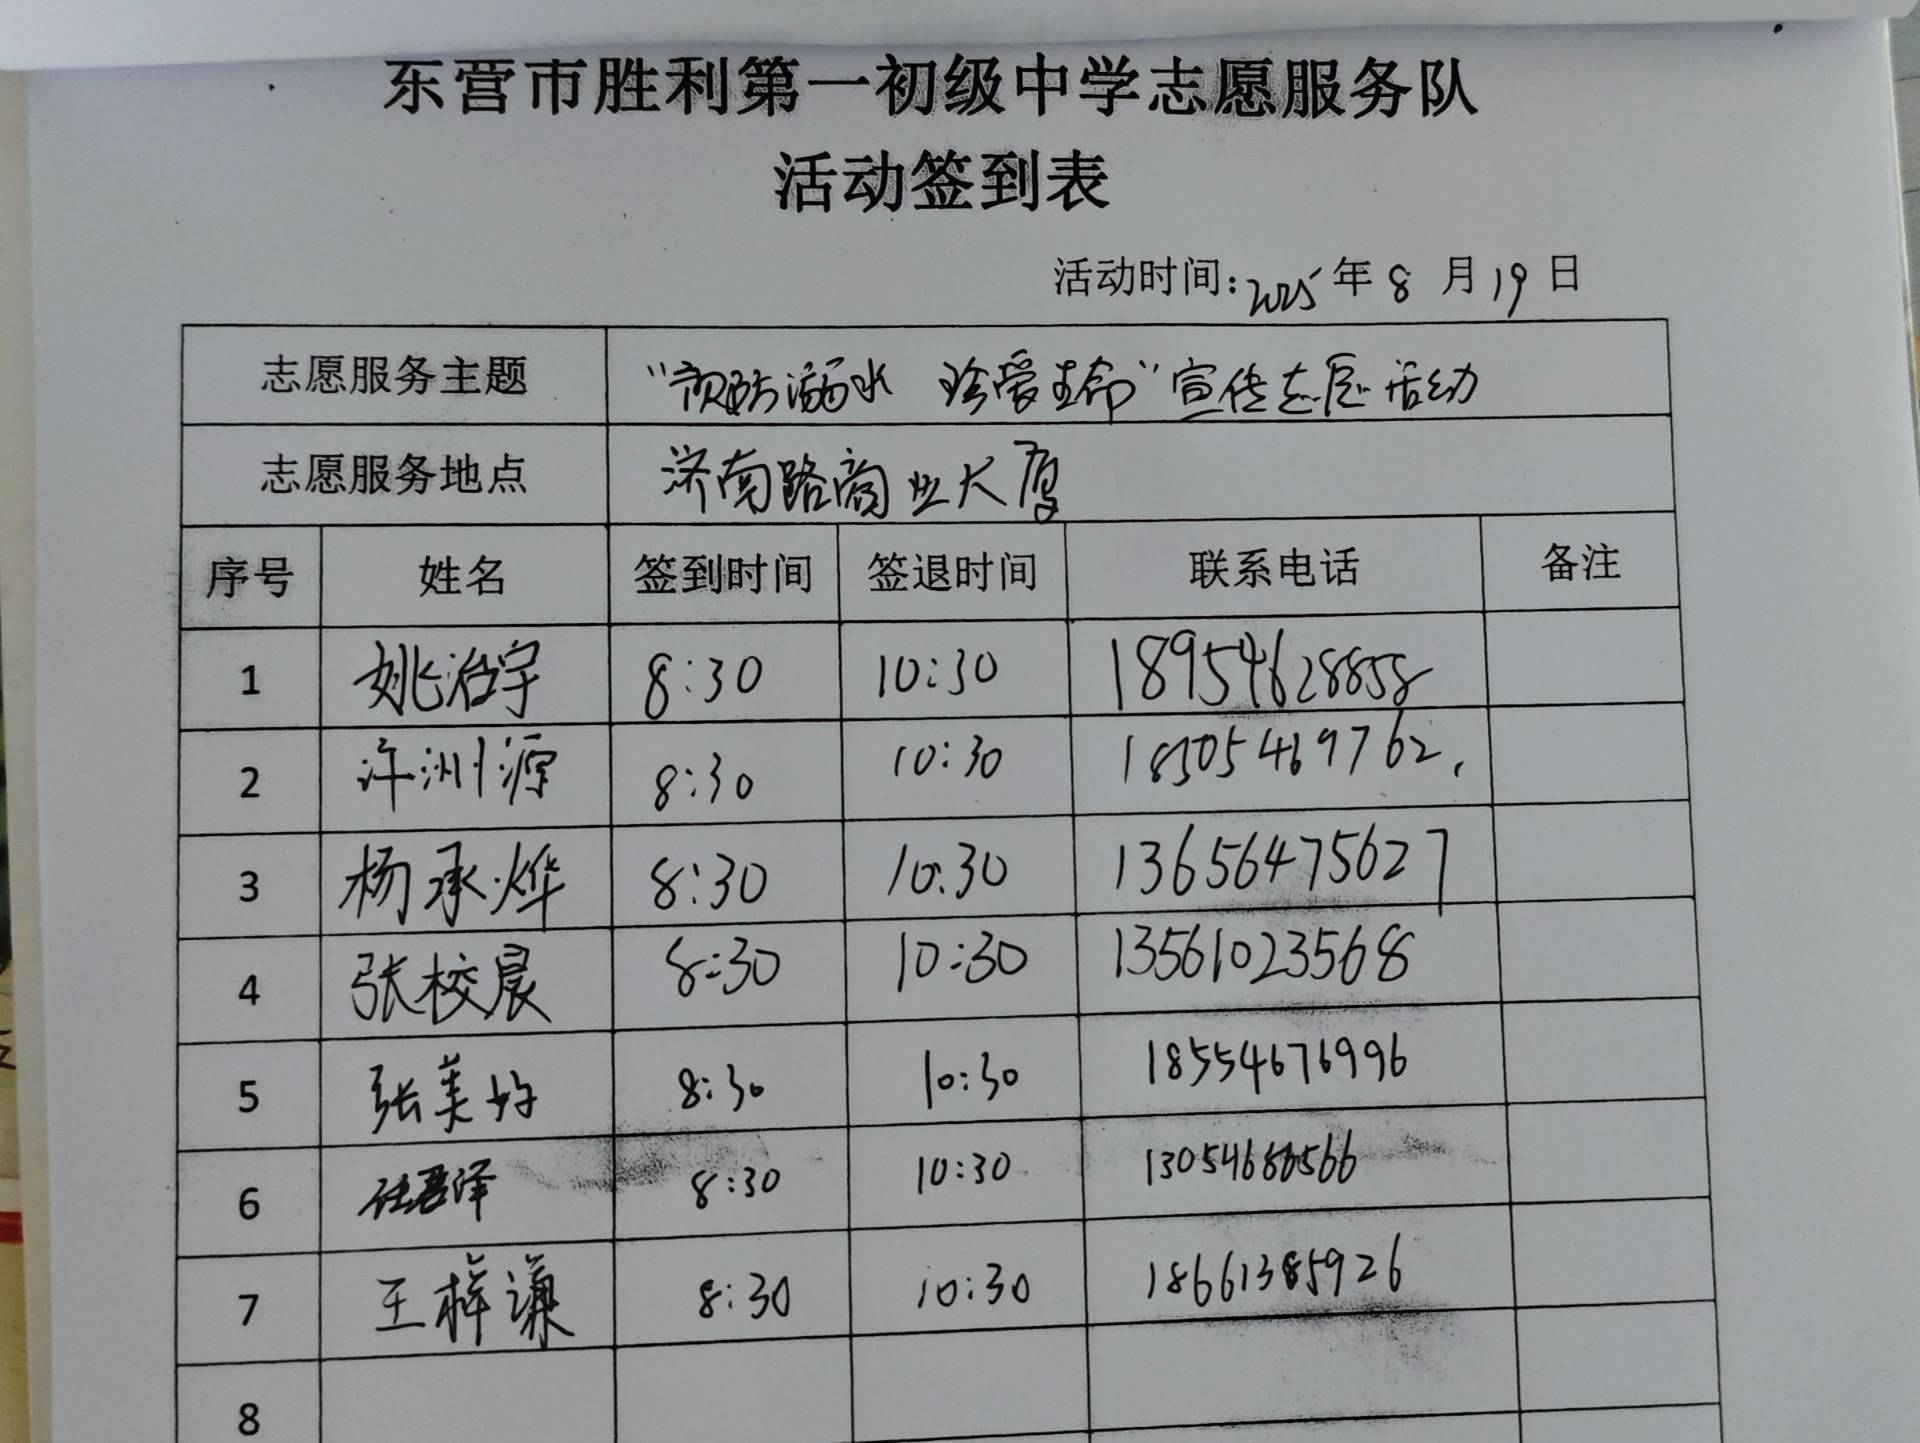 东营市胜利第一初级中学志愿服务队
活动签到表
活动时间:2025年8月19日
志愿服务主题 “预防溺水 珍爱生命”宣传志愿活动
志愿服务地点 济南路商业大厦
序号 姓名 签到时间 签退时间 联系电话 备注
1 姚治宇 8:30 10:30 18954628858
2 许洲源 8:30 10:30 18505469762.
3 杨承烨 8:30 10:30 13656475627
4 张校晨 8:30 10:30 13561023568
5 张美灼 8:30 10:30 18554676996
6 任君泽 8:30 10:30 13054686566
7 王梓谦 8:30 10:30 18661385926
8